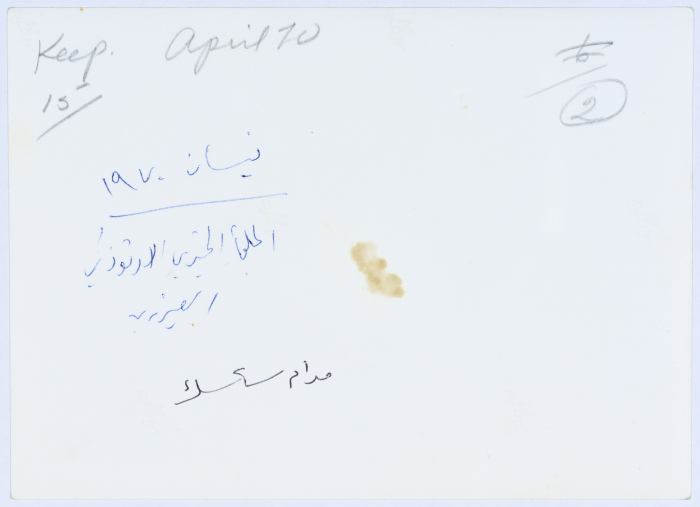 Keep. April 70
15
2
نيسان ١٩٧٠
الملجأ الخيري الارثوذكسي
مدام